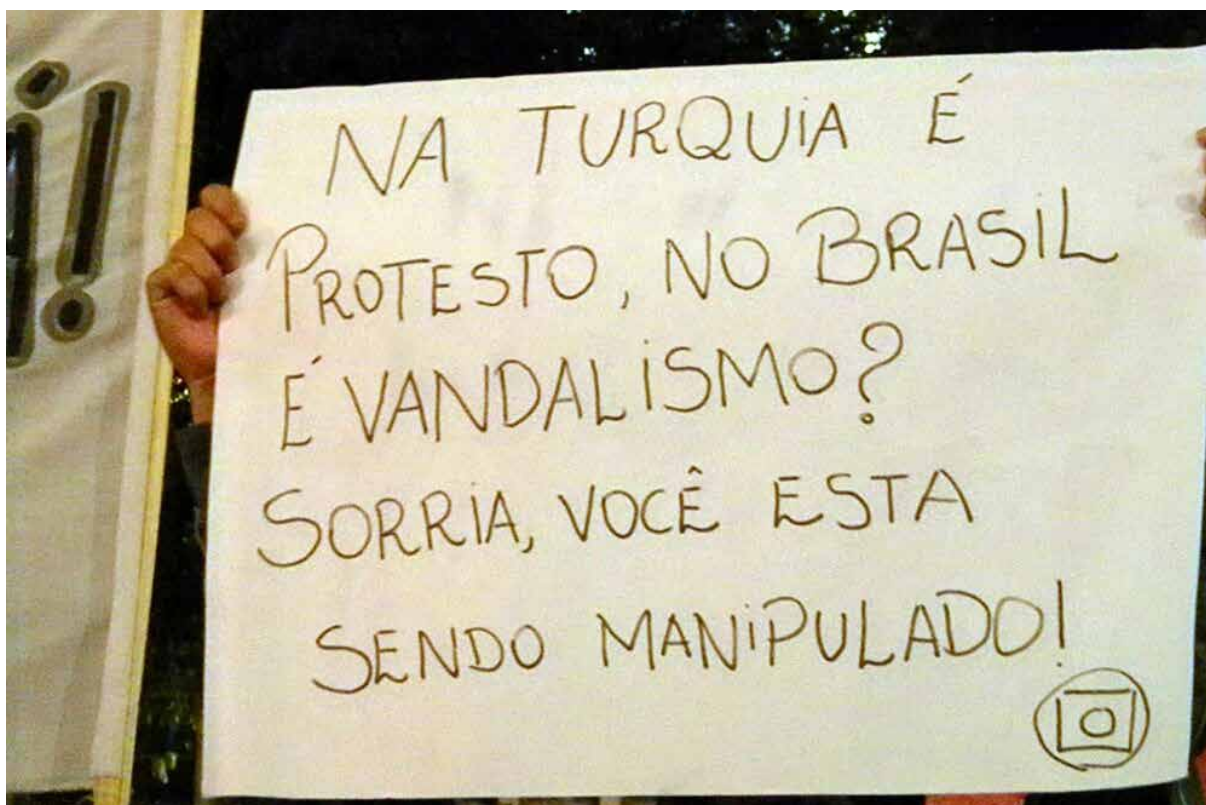 NA TURQUiA É
PROTESTO, NO BRASiL
É VANDALiSMO?
SORRiA, VOCÊ ESTA
SENDO MANiPULADO!